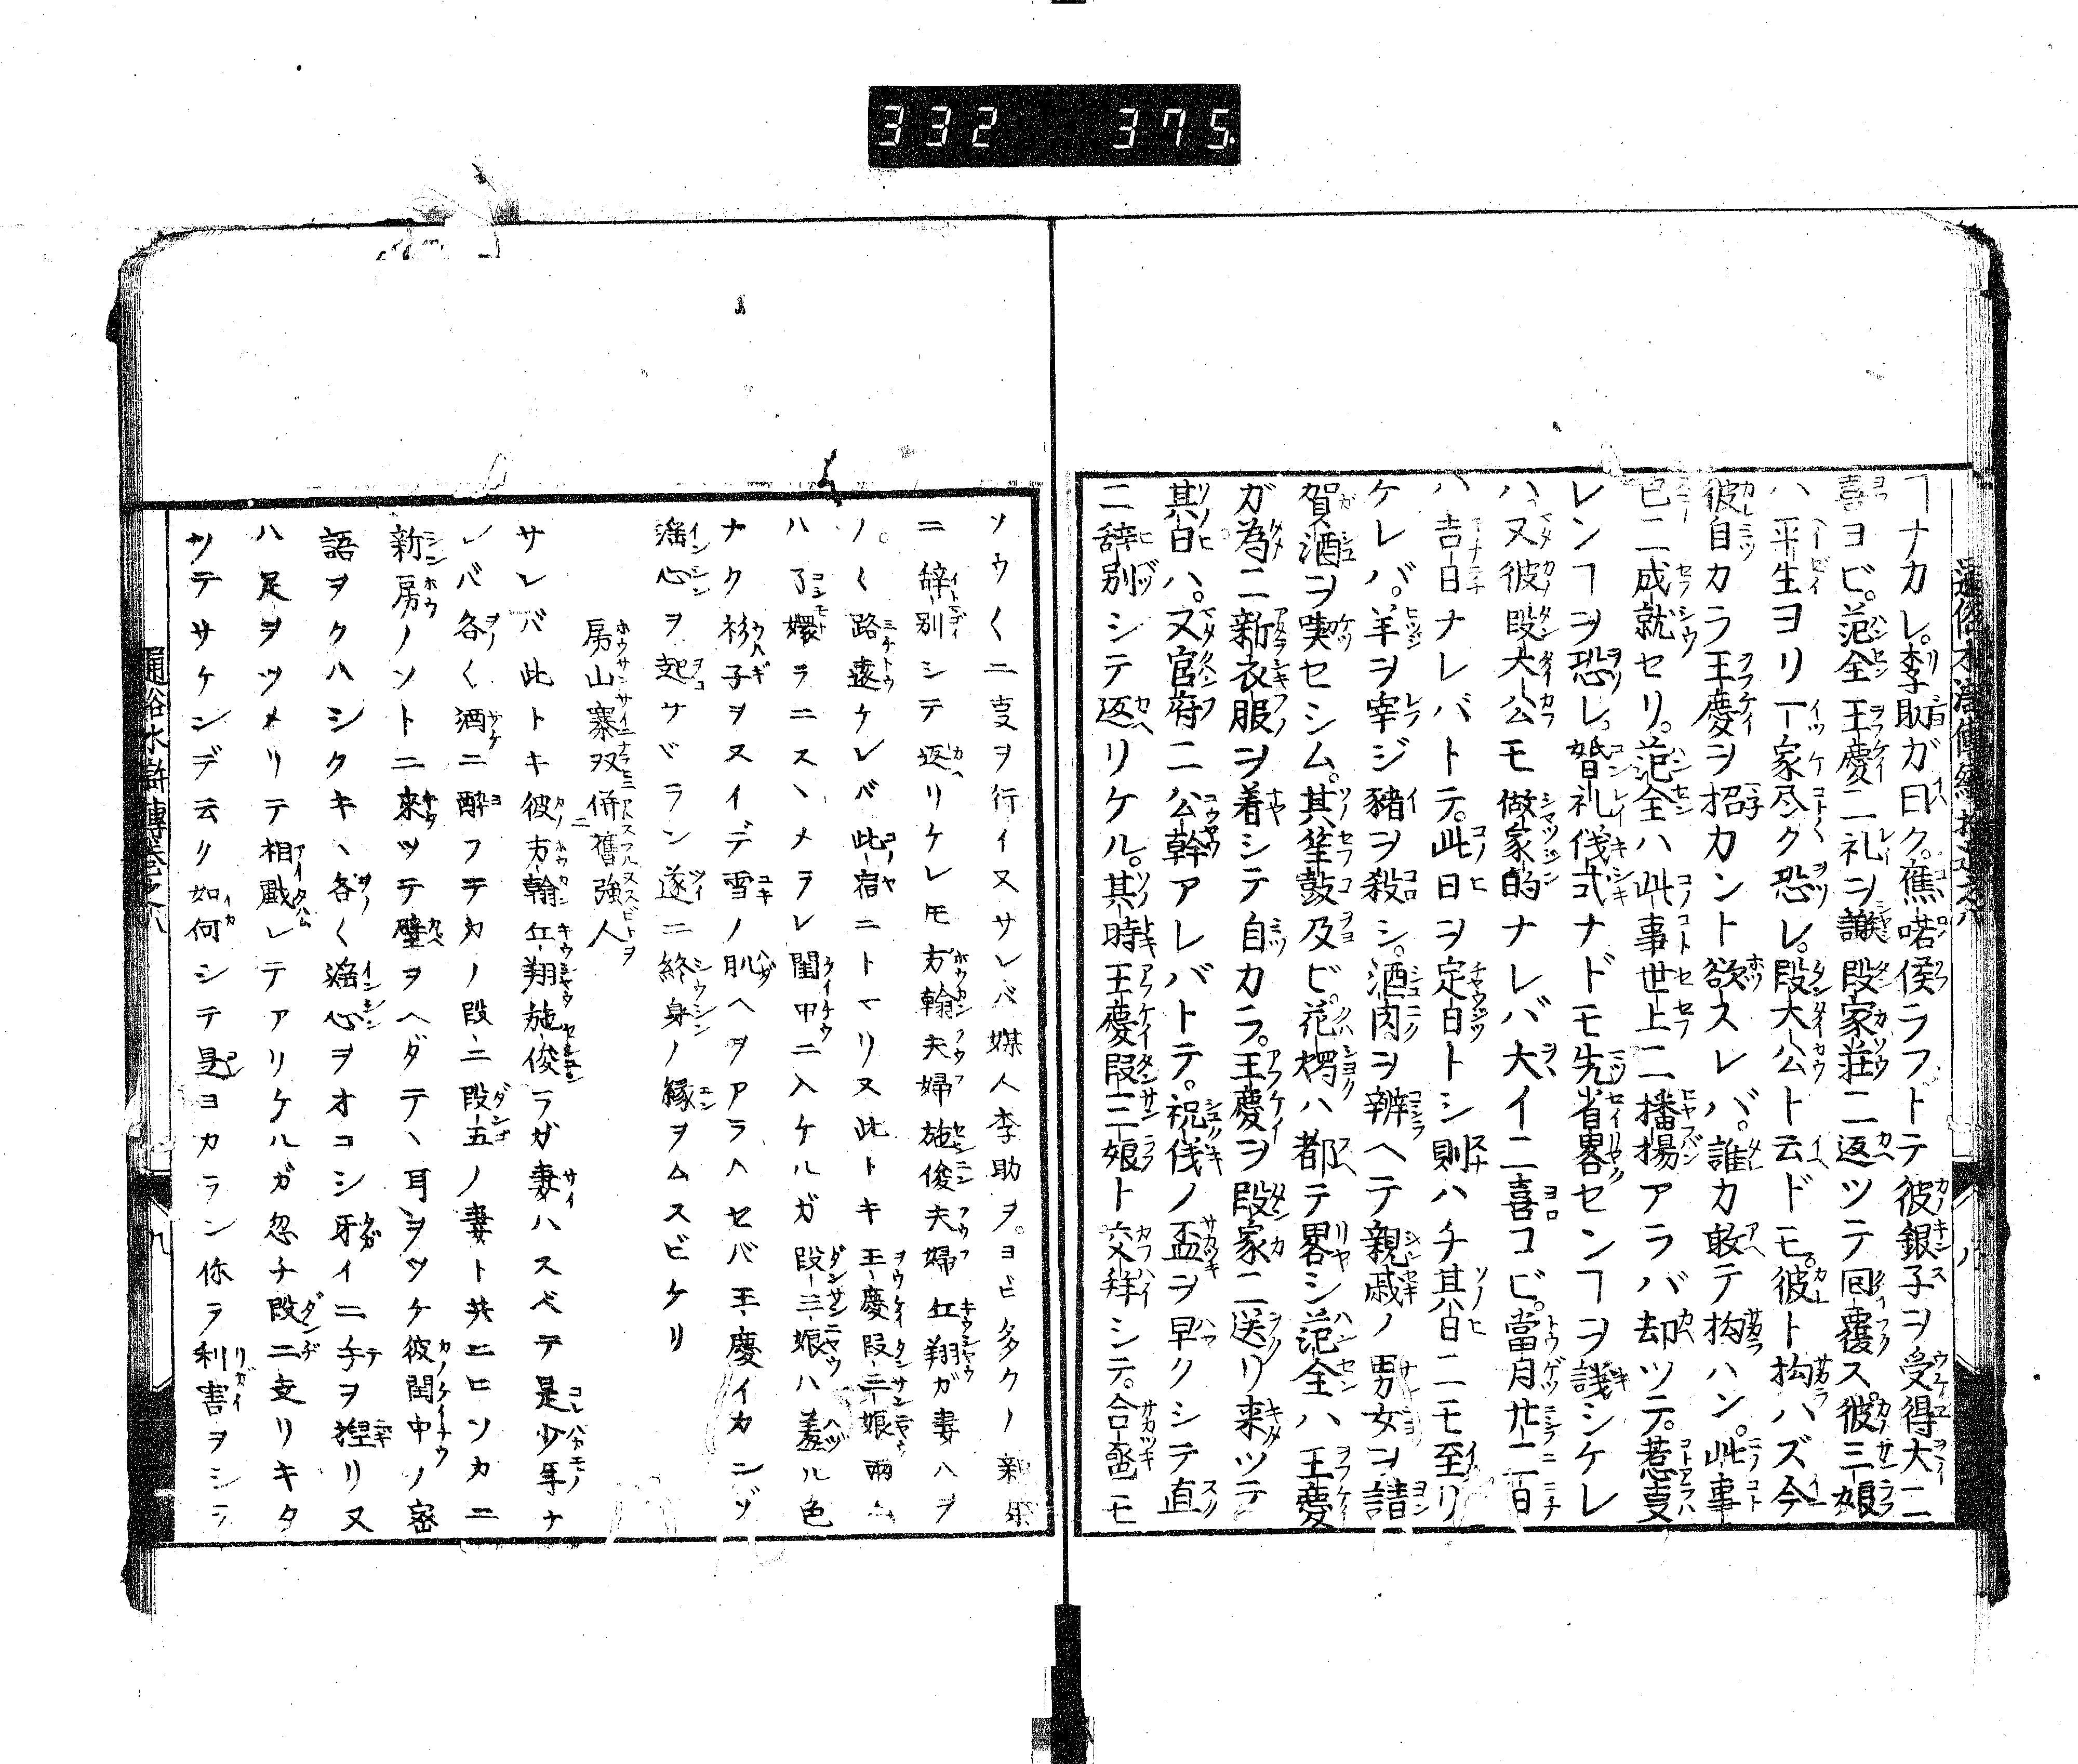 332 375
ヿナカレ。李助ガ曰ク。蕉喏候ラフトテ彼銀子ヲ受得大ニ
喜ヨビ。范全王慶ニ礼ヲ謝段家荘ニ返ツテ回覆ス。彼三娘
ハ平生ヨリ一家尽ク恐レ。段大公ト云ドモ。彼ト抅ハズ今
彼自カラ王慶ヲ招カント欲スレバ。誰カ敢テ抅ハン。此事
已ニ成就セリ。范全ハ此事世上ニ播揚アラバ却ツテ。惹㕝
レンヿヲ恐レ。婚礼儀式ナドモ先省畧センヿヲ議シケレ
ハ。又彼段大公モ做家的ナレバ大イニ喜コビ。當月廿二日
ハ吉日ナレバトテ。此日ヲ定日トシ則ハチ其日ニモ至リ
ケレバ。羊ヲ宰ジ豬ヲ殺シ。酒肉ヲ辨ヘテ親戚ノ男女ヲ請
賀酒ヲ喫セシム。其笙鼓及ビ。花燭ハ都テ畧シ范全ハ王慶
ガ為ニ新衣服ヲ着シテ自カラ。王慶ヲ段家ニ送リ来ツテ
其日ハ。又官府ニ公幹アレバトテ。祝儀ノ盃ヲ早クシテ直
ニ辞別シテ返リケル。其時王慶段三娘ト交拜シテ。合卺モ
ソウ〱ニ㕝ヲ行イ又サレバ媒人李助ヲ。ヨビ多クノ親
ニ辞別シテ返リケレ𪜈方翰夫婦施俊夫婦丘翔ガ妻ハヲ
ノ〱路遠ケレバ此宿ニトマリヌ此トキ王慶段三娘両
ハ了嬛ラニスヽメラレ閨中ニ入ケルガ段三娘ハ羞ル色
ナク衫子ヲヌイデ雪ノ肌ヘヲアラハセバ王慶イカンゾ
滛心ヲ起サヾラン遂ニ終身ノ縁ヲムスビケリ
房山寨双併舊強人
サレバ此トキ彼方翰丘翔施俊ラガ妻ハスベテ是少年ナ
レバ各〱酒ニ醉フテカノ段二段五ノ妻ト共ニヒソカニ
新房ノソトニ來ツテ壁ヲヘダテヽ耳ヲツケ彼閨中ノ密
語ヲクハシクキヽ各〱滛心ヲオコシ牙イニ手ヲ揑リ又
ハ足ヲツメリテ相戲レテアリケルガ忽チ段二走リキタ
ツテサケンデ云リ如何シテ是ヨカラン你ラ利害ヲシラ
通俗水滸傳巻之八